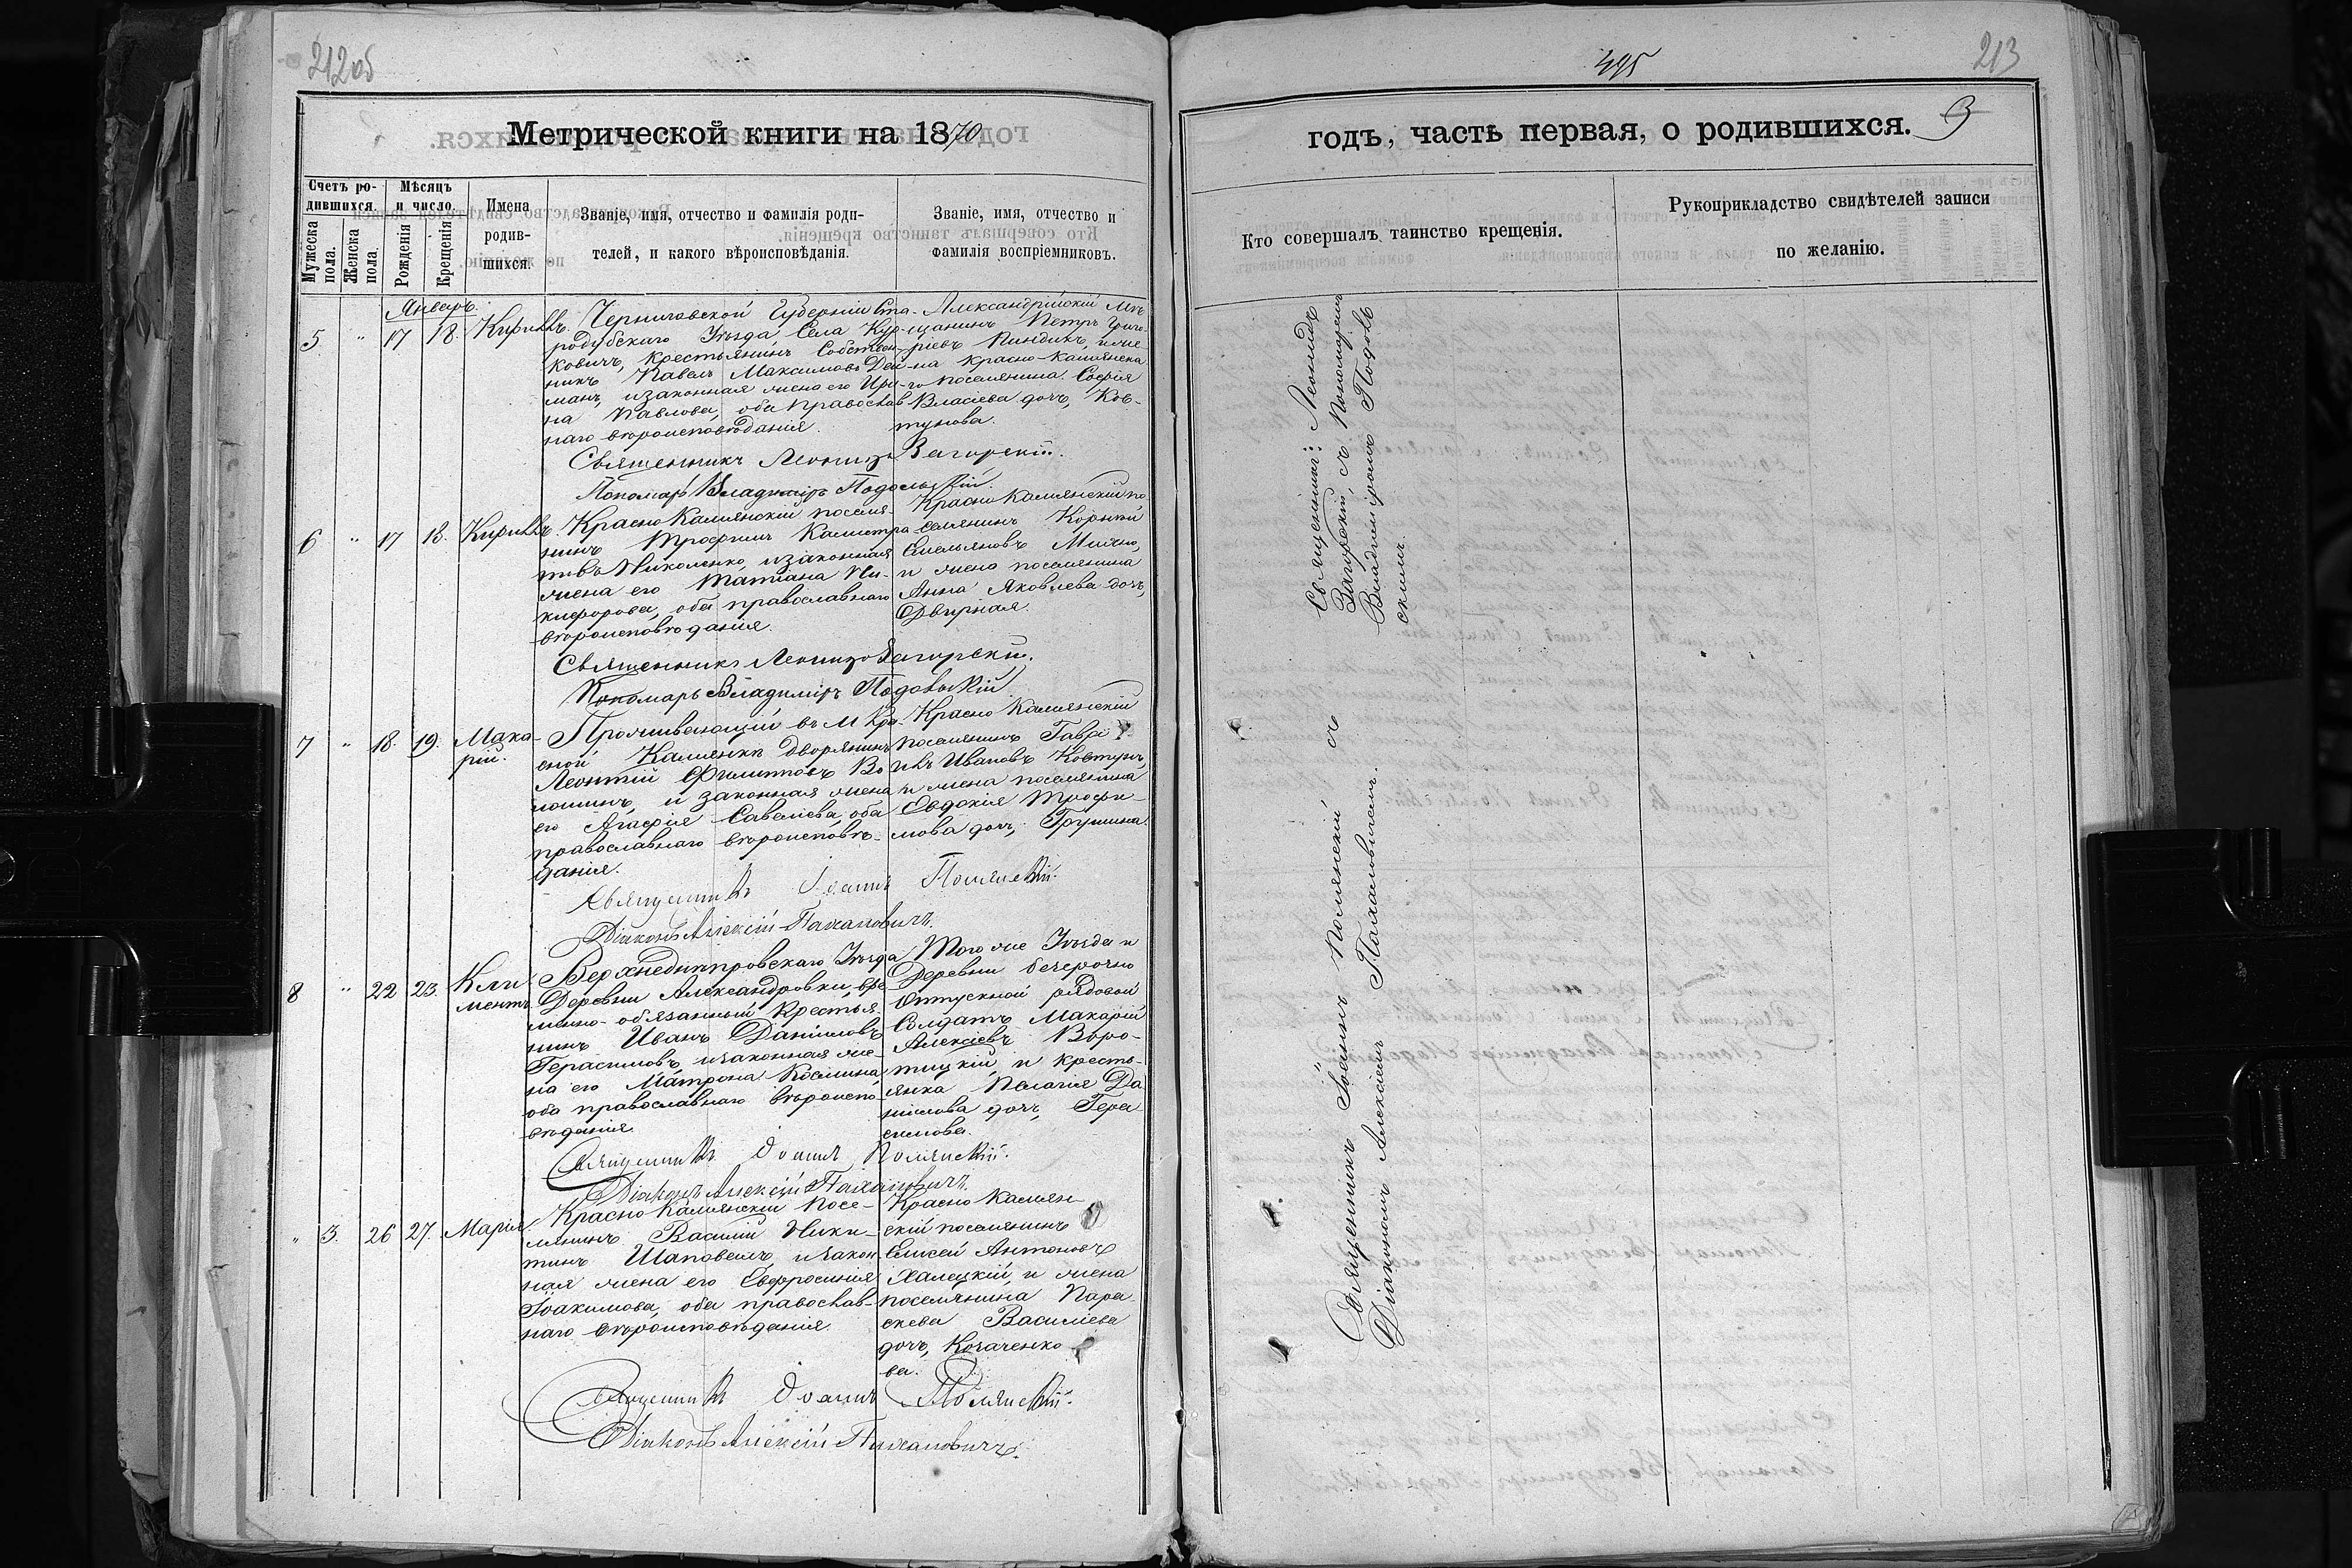 212об
Метрической книги на 1870
Счетъ родившихся.
Мѣсяцъ и число.
Имена родившихся.
Званіе, имя, отчество и фамилія родителей, и какого вѣроисповѣданія.
Званіе, имя, отчество и фамилія воспріемниковъ.
Мужеска пола.
Женска пола.
Рожденія
Крещенія
Январь
5. " 17 18. Кириллъ.
Черниговской Губерніи Ста-
родубскаго Уѣзда, Села Кур-
ковичъ, крестьянинъ Собствен-
никъ Павелъ Максимовъ
манъ, и законная жена его Ири-
на Павлова, оба православ
наго вѣроисповѣданія.
Александрійскій Мѣ-
щанинъ Петръ Григо-
ріевъ Пиндикъ, и же-
на Красно-Камянска-
го поселянина Софія
Власіева дочь, Ков-
тунова.
Священникъ Леонидъ Загорскій.
Пономарь Владиміръ Подольскій.
6 " 17 18. Кириллъ.
Красно Камянскій поселя-
нинъ Трофимъ Калистра-
товъ Николенко, и законная
жена его Татіана Ни-
кифорова, оба православнаго
вѣроисповѣданія.
Красно Камянскій по
селянинъ Корнилій
Емельяновъ
и жена поселянина
Анна Яковлева дочь,
Двирная.
Священникъ Леонидъ Загорскій.
Пономарь Владиміръ Подольскій
7 " 18. 19. Мака-
рій.
Проживающій въ М Кра-
сной Камянкѣ дворянинъ
Леонтій Филипповъ Во
лошинъ, и законная жена
его Агафія Савеліева, оба
православнаго вѣроисповѣ-
данія.
Красно Камянскій
поселянинъ Гаврі
илъ Ивановъ Ковтунъ,
и жена поселянина
Евдокія Трофи-
мова дочь, Грушина.
Священникъ Іоаннъ Полянскій.
Діаконъ Алексій Пахаловичъ.
8 " 22 23. Кли-
ментъ
Верхнеднѣпровскаго Уѣзда
Деревни Александровки, вре
менно-обязанный Крестья
нинъ Иванъ Даніиловъ
Герасимовъ, и законная же-
на его Матрона Косьмина,
оба православнаго вѣроиспо-
вѣданія
Того же Уѣзда и
Деревни безсрочно
Отпускной рядовой
Солдатъ Макарій
Алексіевъ Воро-
тицкій, и кресть-
янка Пелагія Да
ніилова дочь, Гера
симова.
Священникъ Іоаннъ Полянскій.
Діаконъ Алексій Пахаловичъ.
" 3. 26 27. Марія.
Красно Камянскій Посе-
лянинъ Василій Ники-
тинъ Шаповалъ, и закон
ная жена его Евфросинія
Іоакимова, оба православ-
наго вѣроисповѣданія
Красно Камян
скій поселянинъ
Елисей Антоновъ
Халецкій, и жена
поселянина Пара
скева Василіева
дочь, Козаченко
ва.
Священникъ Іоаннъ Полянскій.
Діаконъ Алексій Пахаловичъ.
495
213
годъ, часть первая, о родившихся. 3
Кто совершалъ таинство крещенія.
Рукоприкладство свидѣтелей записи
по желанію.
Священникъ: Леонидъ
Загорскій, съ Пономаремъ
Владиміромъ Подоль
скимъ.
Священникъ Іоаннъ Полянскій съ
Діакономъ Алексіемъ Пахаловичемъ.